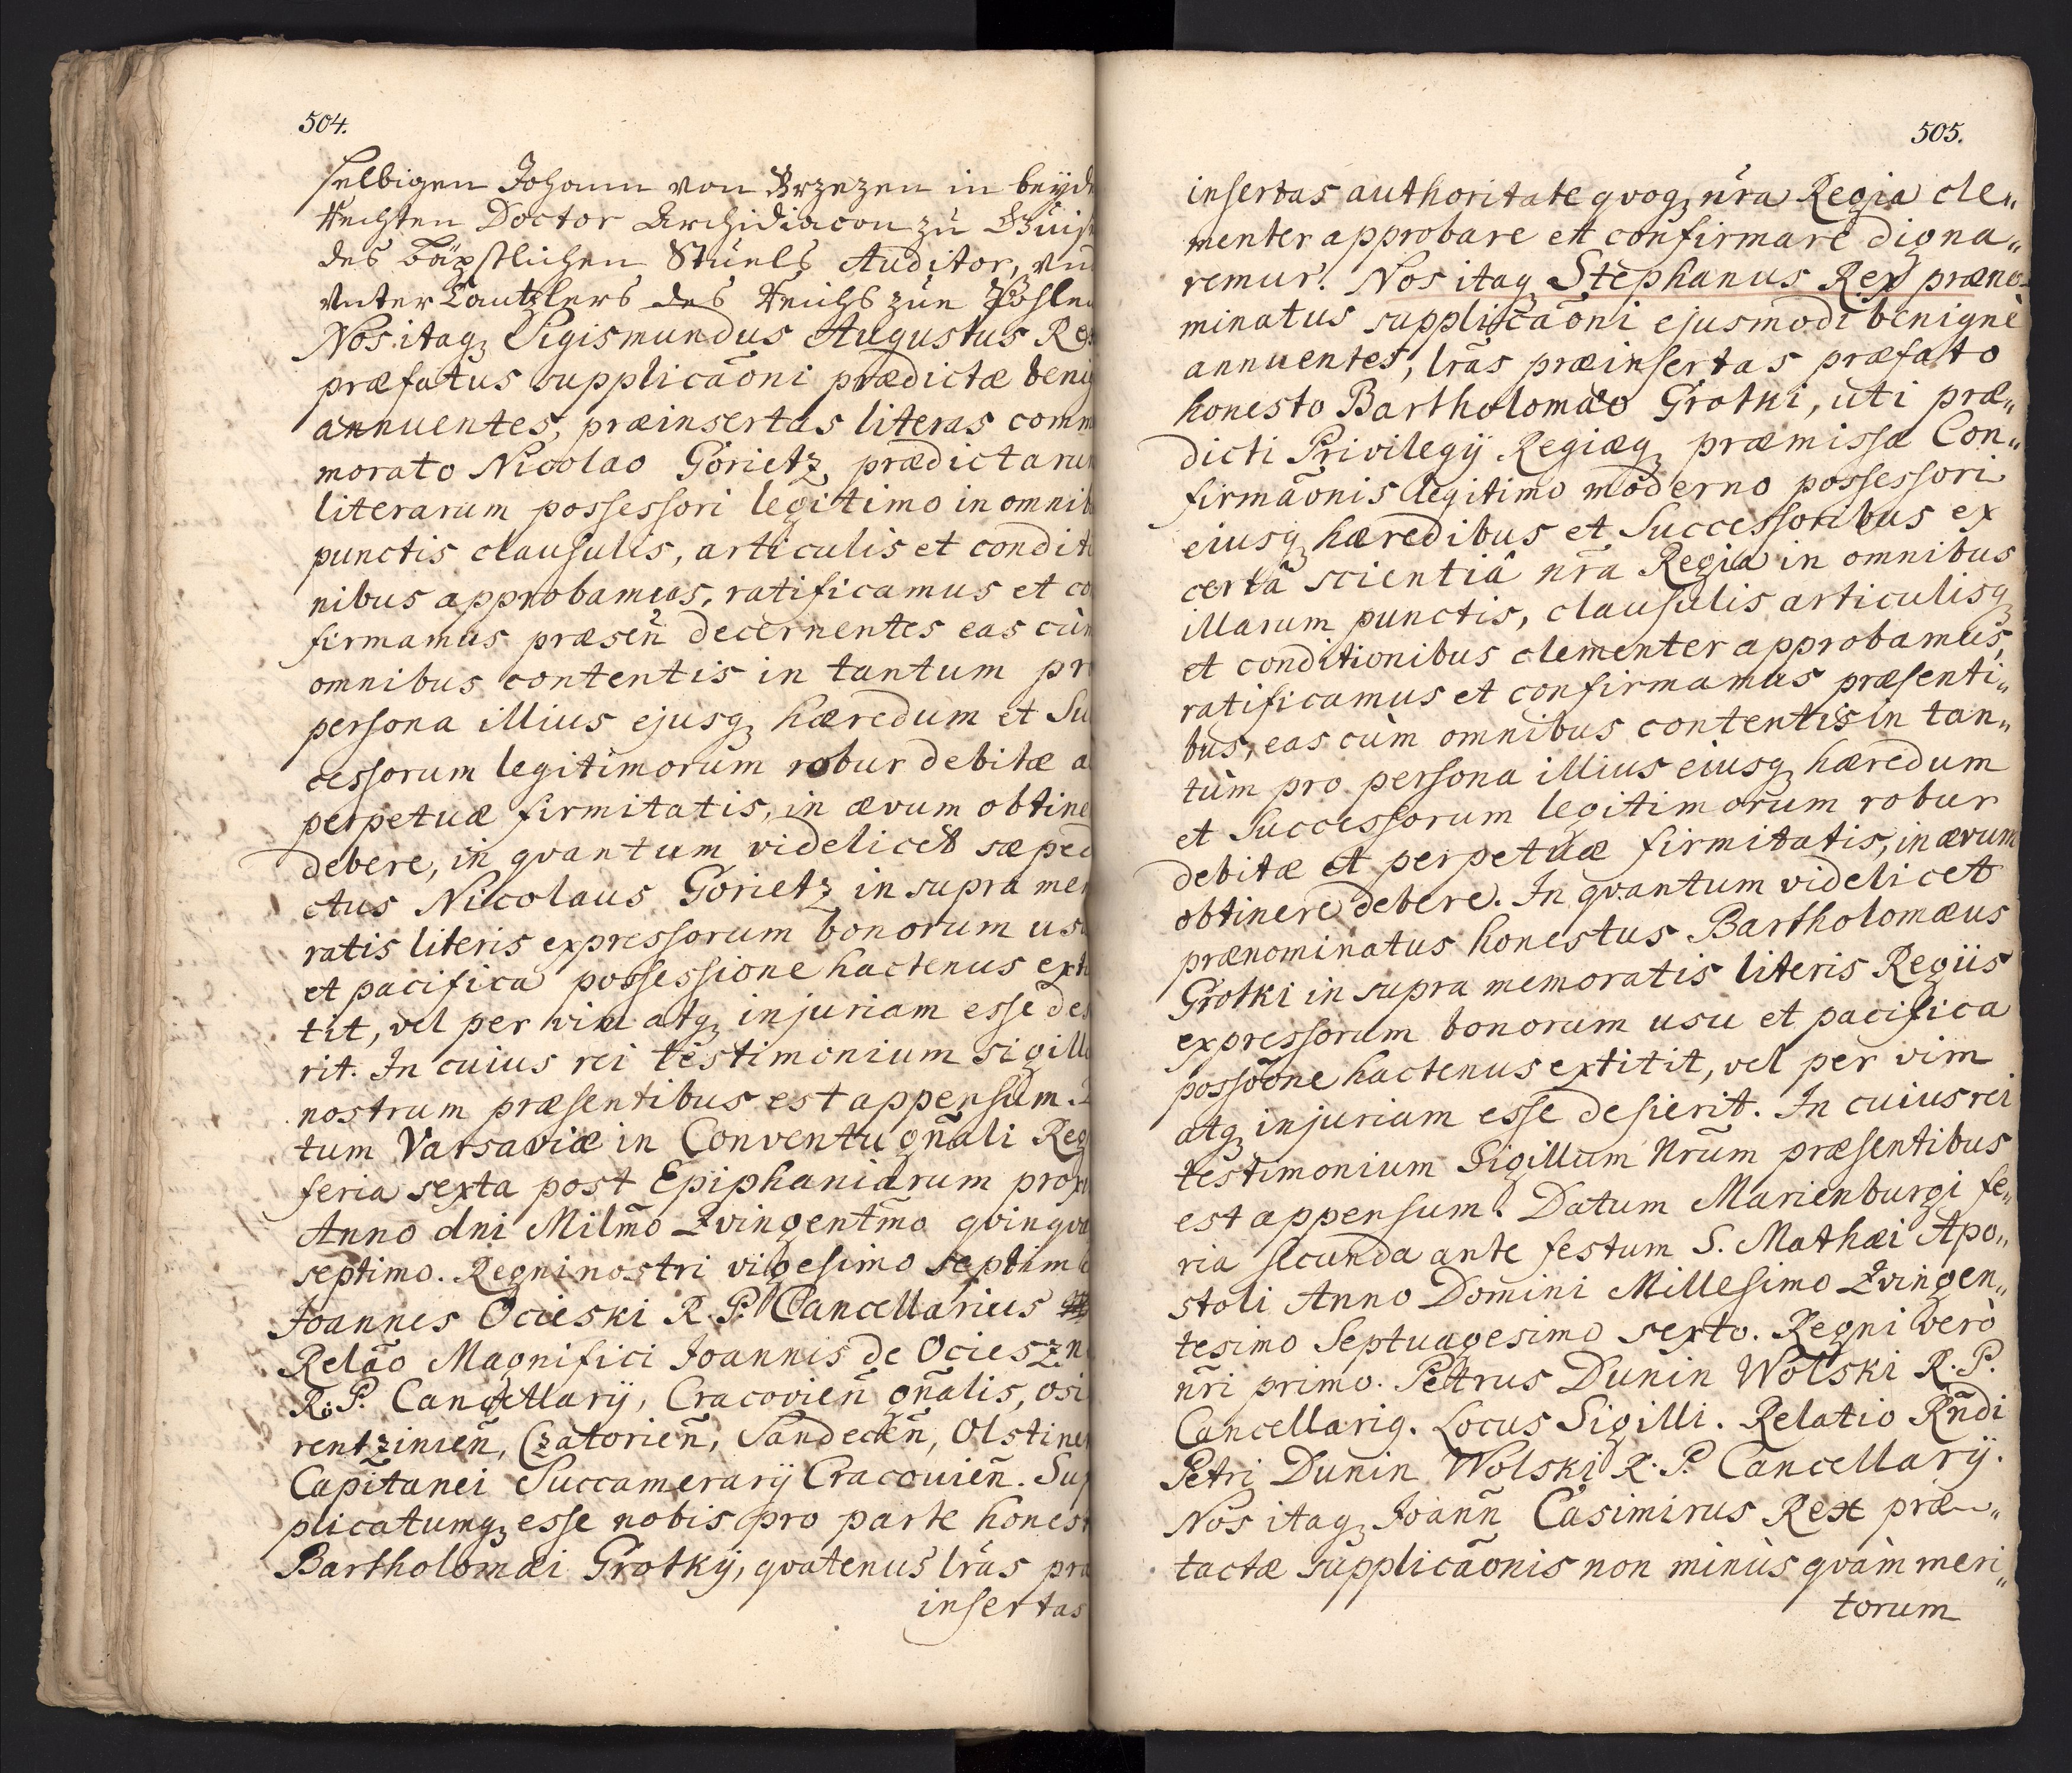 504.
selbigen Johann von Brzezen in beyde
Rechten Doctor Archidiacon zu
des Bäpstlichen Stuels Auditor, vnd
Vnter Cantzlers des Reichs zue Pohlen
Nos itaq₃ Sigismundus Augustus Rex
præfatus supplicãoni prædictæ benig
annuentes, præinsertas literas comme
morato Nicolao Gorietz prædictarum
literarum possessori legitimo in omnib
punctis clausulis, articulis et conditi
nibus approbamus, ratificamus et co
firmamus præsen̄ decernentes eas cùm
omnibus contentis in tantum pro
persona illius ejusq₃ hæredum et Suc
cessorum legitimorum robur debitæ a
perpetuæ firmitatis, in ævum obtine
debere, in qvantum videlicet sæped
ctus Nicolaus Gorietz in supra mem
ratis literis expressorum bonorum usu
et pacifica possessione hactenus exti
tit, vel per vim atq₃ injuriam esse des
rit. In cuius rei testimonium sigillu
nostrum præsentibus est appensum. D
tum Varsaviæ in Conventu gn̄ali Reg
feria sexta post Epiphaniarum prox
Anno dni Milm̄o Qvingentm̄o qvinqva
septimo. Regni nostri vigesimo septim
Joannes Ocieski R. P. Cancellarius
Relão Magnifici Joannis de Ociesz
R. P. Cancellarÿ, Cracovien̄ gn̄alis, Osi
rentzimien̄, Czatorien̄, Sandecen̄, Olstinen
Capitanei Succamerarÿ Cracouien̄. Sup
plicatumq₃ esse nobis pro parte honest
Bartholomæi Grotkÿ, qvatenus lr̄as præ
insertas
505.
insertas authoritate qvoq₃ nr̄a Regia cle„
menter approbare et confirmare digna„
remur. Nos itaq₃ Stephanus Rex præno-
minatus supplicãoni ejusmodi benignè
annuentes, lr̄as præinsertas præfato
honesto Bartholomæo Grotki, uti præ„
dicti Privilegÿ Regiæq₃ præmissæ Con„
firmãonis legitimo moderno possessori
eiusq₃ hæredibus et Successoribus ex
certâ scientiâ nr̄a Regia in omnibus
illarum punctis, clausulis articulisq₃
et conditionibus clementer approbamus,
ratificamus et confirmamus præsenti„
bus, eas cùm omnibus contentis in tan„
tùm pro persona illius eiusq₃ hæredum
et Successorum legitimorum robur
debitæ et perpetuæ firmitatis, in ævum
obtinere debere. In qvantum videlicet
prænominatus honestus Bartholomæus
Grotki in supra memoratis literis Regiis
expressorum bonorum usu et pacifica
possõone hactenus extitit, vel per vim
atq₃ injuriam esse desierit. In cuius rei
testimonium Sigillum Nrūm præsentibus
est appensum. Datum Marienburgi fe„
ria secunda ante festum S. Mathæi Apo„
stoli Anno Domini Millesimo Qvingen„
tesimo Septuagesimo sexto. Regni verò
nr̄i primo. Petrus Dunin Wolski R. P.
Cancellarig. Locus Sigilli. Relatio Rn̄di
Petri Dunin Wolski R. P. Cancellarÿ.
Nos itaq₃ Joann̄ Casimirus Rex præ„
tactæ supplicãonis non minùs qvàm meri„
torum